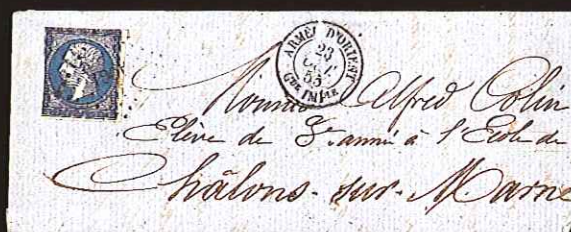 ARMÉE D'ORIENT
23
OCT.
55
Gde IMPle
Monsieur Alfred Colin
Elève de 3e année à l'Ecole de
Châlons-sur-Marne